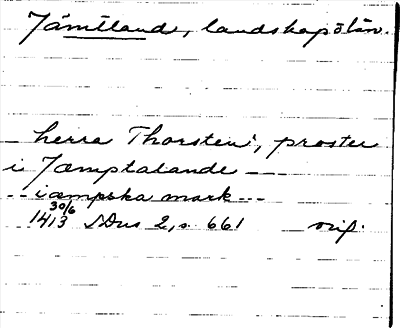 Jämtland, landskap o län.
herra Thorsten, proster
i Jæmptalande ---
-- iæmpska mark ---
30/6
1413 SDns 2, s. 661 orig.